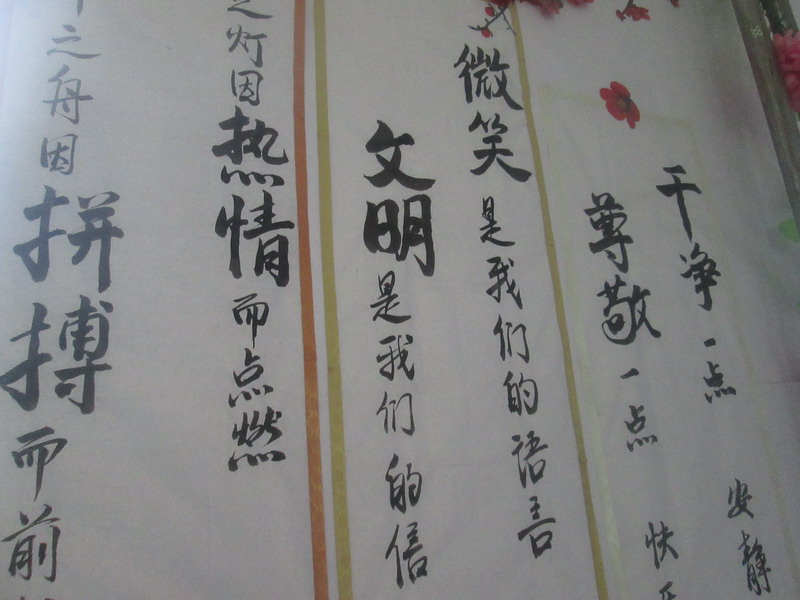 干净一点 安静
尊敬一点 快
微笑是我们的语言
文明是我们的信
之灯因热情而点燃
之舟因拼搏而前